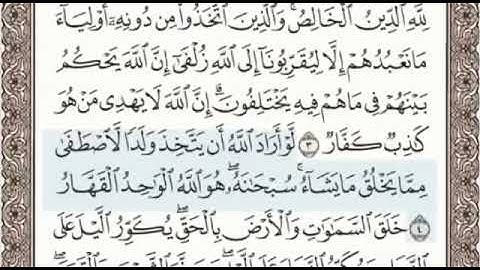 لِلَّهِ الدِّينُ الْخَالِصُ ۚ وَالَّذِينَ اتَّخَذُوا مِن دُونِهِ أَوْلِيَاءَ
مَا نَعْبُدُهُمْ إِلَّا لِيُقَرِّبُونَا إِلَى اللَّهِ زُلْفَىٰ إِنَّ اللَّهَ يَحْكُمُ
بَيْنَهُمْ فِي مَا هُمْ فِيهِ يَخْتَلِفُونَ ۗ إِنَّ اللَّهَ لَا يَهْدِي مَنْ هُوَ
كَٰذِبٌ كَفَّارٌ ٣ لَّوْ أَرَادَ اللَّهُ أَن يَتَّخِذَ وَلَدًا لَّاصْطَفَىٰ
مِمَّا يَخْلُقُ مَا يَشَاءُ ۚ سُبْحَٰنَهُ ۖ هُوَ اللَّهُ الْوَٰحِدُ الْقَهَّارُ
٤ خَلَقَ السَّمَٰوَٰتِ وَالْأَرْضَ بِالْحَقِّ ۖ يُكَوِّرُ الَّيْلَ عَلَى